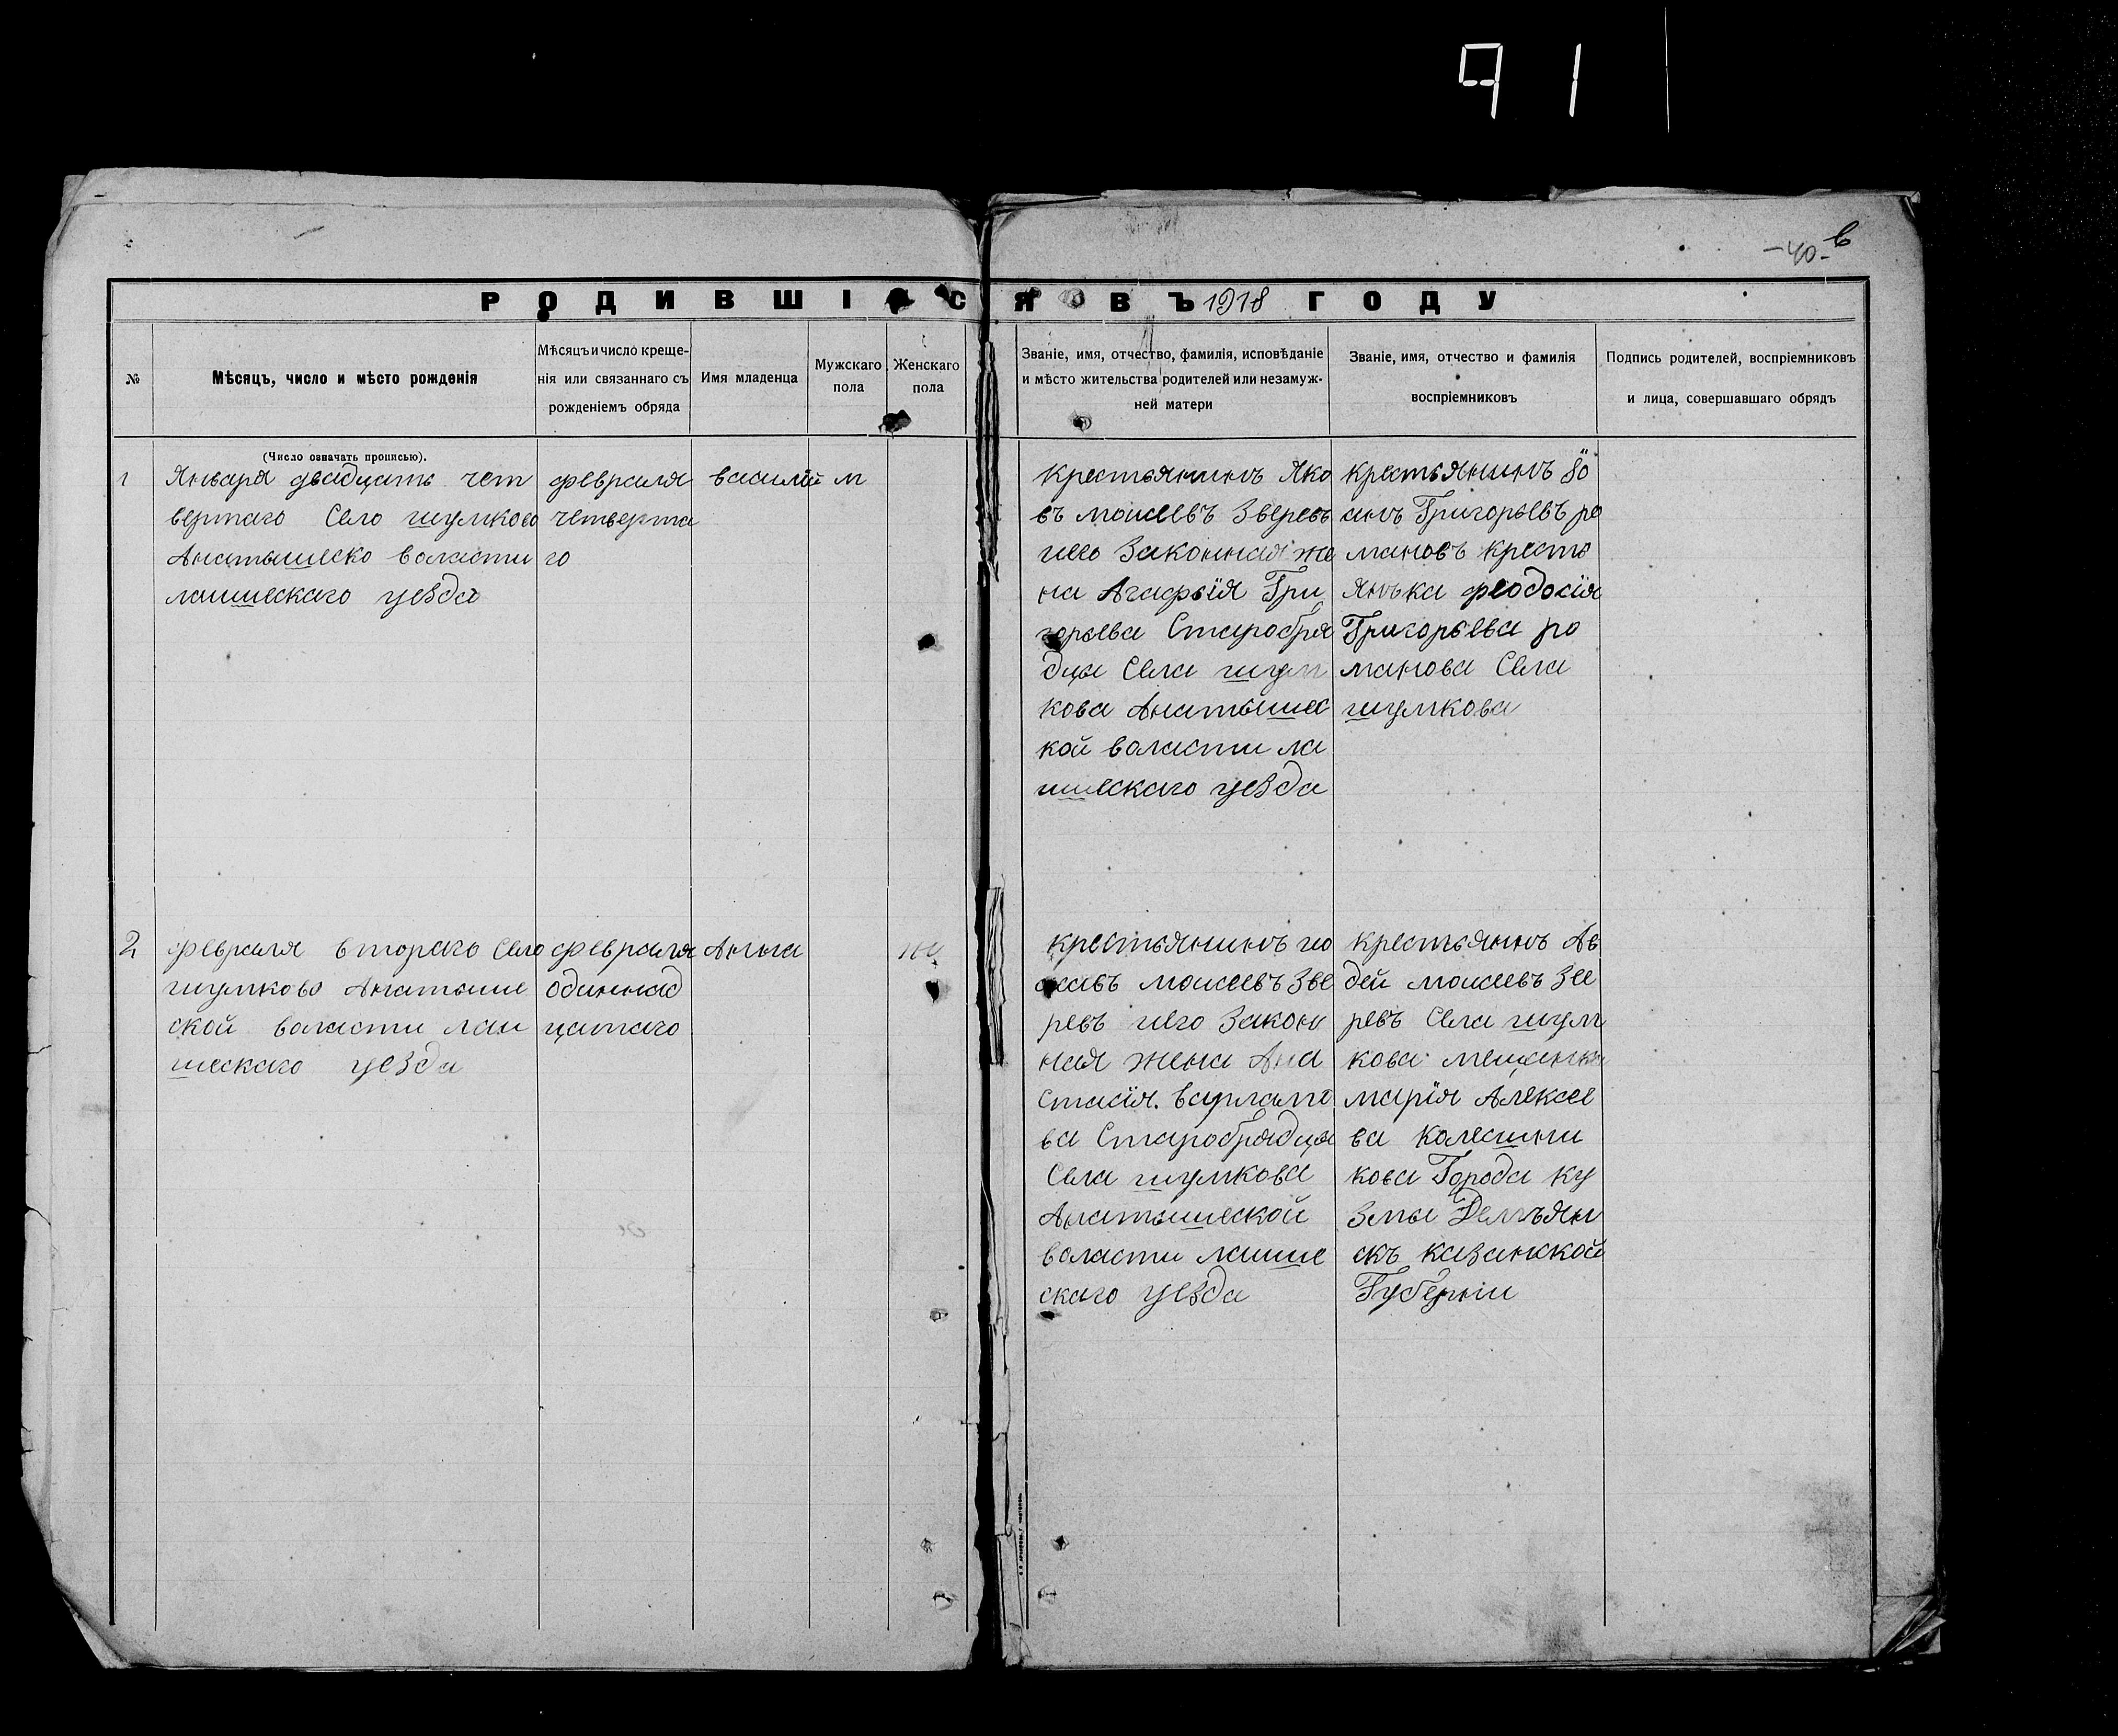 91
-40-
РОДИВШІЕСЯ ВЪ 1918 ГОДУ
№
Мѣсяцъ, число и мѣсто рожденія
Мѣсяцъ и число креще-
нія или связаннаго съ
рожденіемъ обряда
Имя младенца
Мужскаго
пола
Женскаго
пола
Званіе, имя, отчество, фамилія, исповѣданіе
и мѣсто жительства родителей или незамуж-
ней матери
Званіе, имя, отчество и фамилія
воспріемниковъ
Подпись родителей, воспріемниковъ
и лица, совершавшаго обрядъ
(Число означать прописью).
1
Января двадцать чет
вертаго Село шумково
Анатышеско воласти
лаишескаго уезда
февраля
четверта
го
василій
м
крестьянинъ Яко
въ моисеевъ Зверевъ
иего Законная же
на Агафыія Гри
горьева Старобря
дцы Села шум
кова Анатышес
кой воласти ла
ишескаго уезда
крестьянинъ
Григорьевъ ро
мановъ кресть
янъка феодосія
Григорьева ро
манова Села
шумкова
2
февраля втораго Село
шумково Анатыше
ской воласти лаи
шескаго уезда
февраля
одиннад
цатаго
Анна
крестьянинъ
моисеевъ Зве
ревъ иего Закон
ная жена Ана
стасія. варламе
ва Старобрядцы
Села шумкова
Анатышеской
воласти лаише
скаго уезда
крестьянинъ Ав
дей моисеевъ Зве
ревъ Села шум
кова мещанка
марія Алексее
ва колесини
кова Города ку
Змы Демъян
скъ казанской
Губерніи